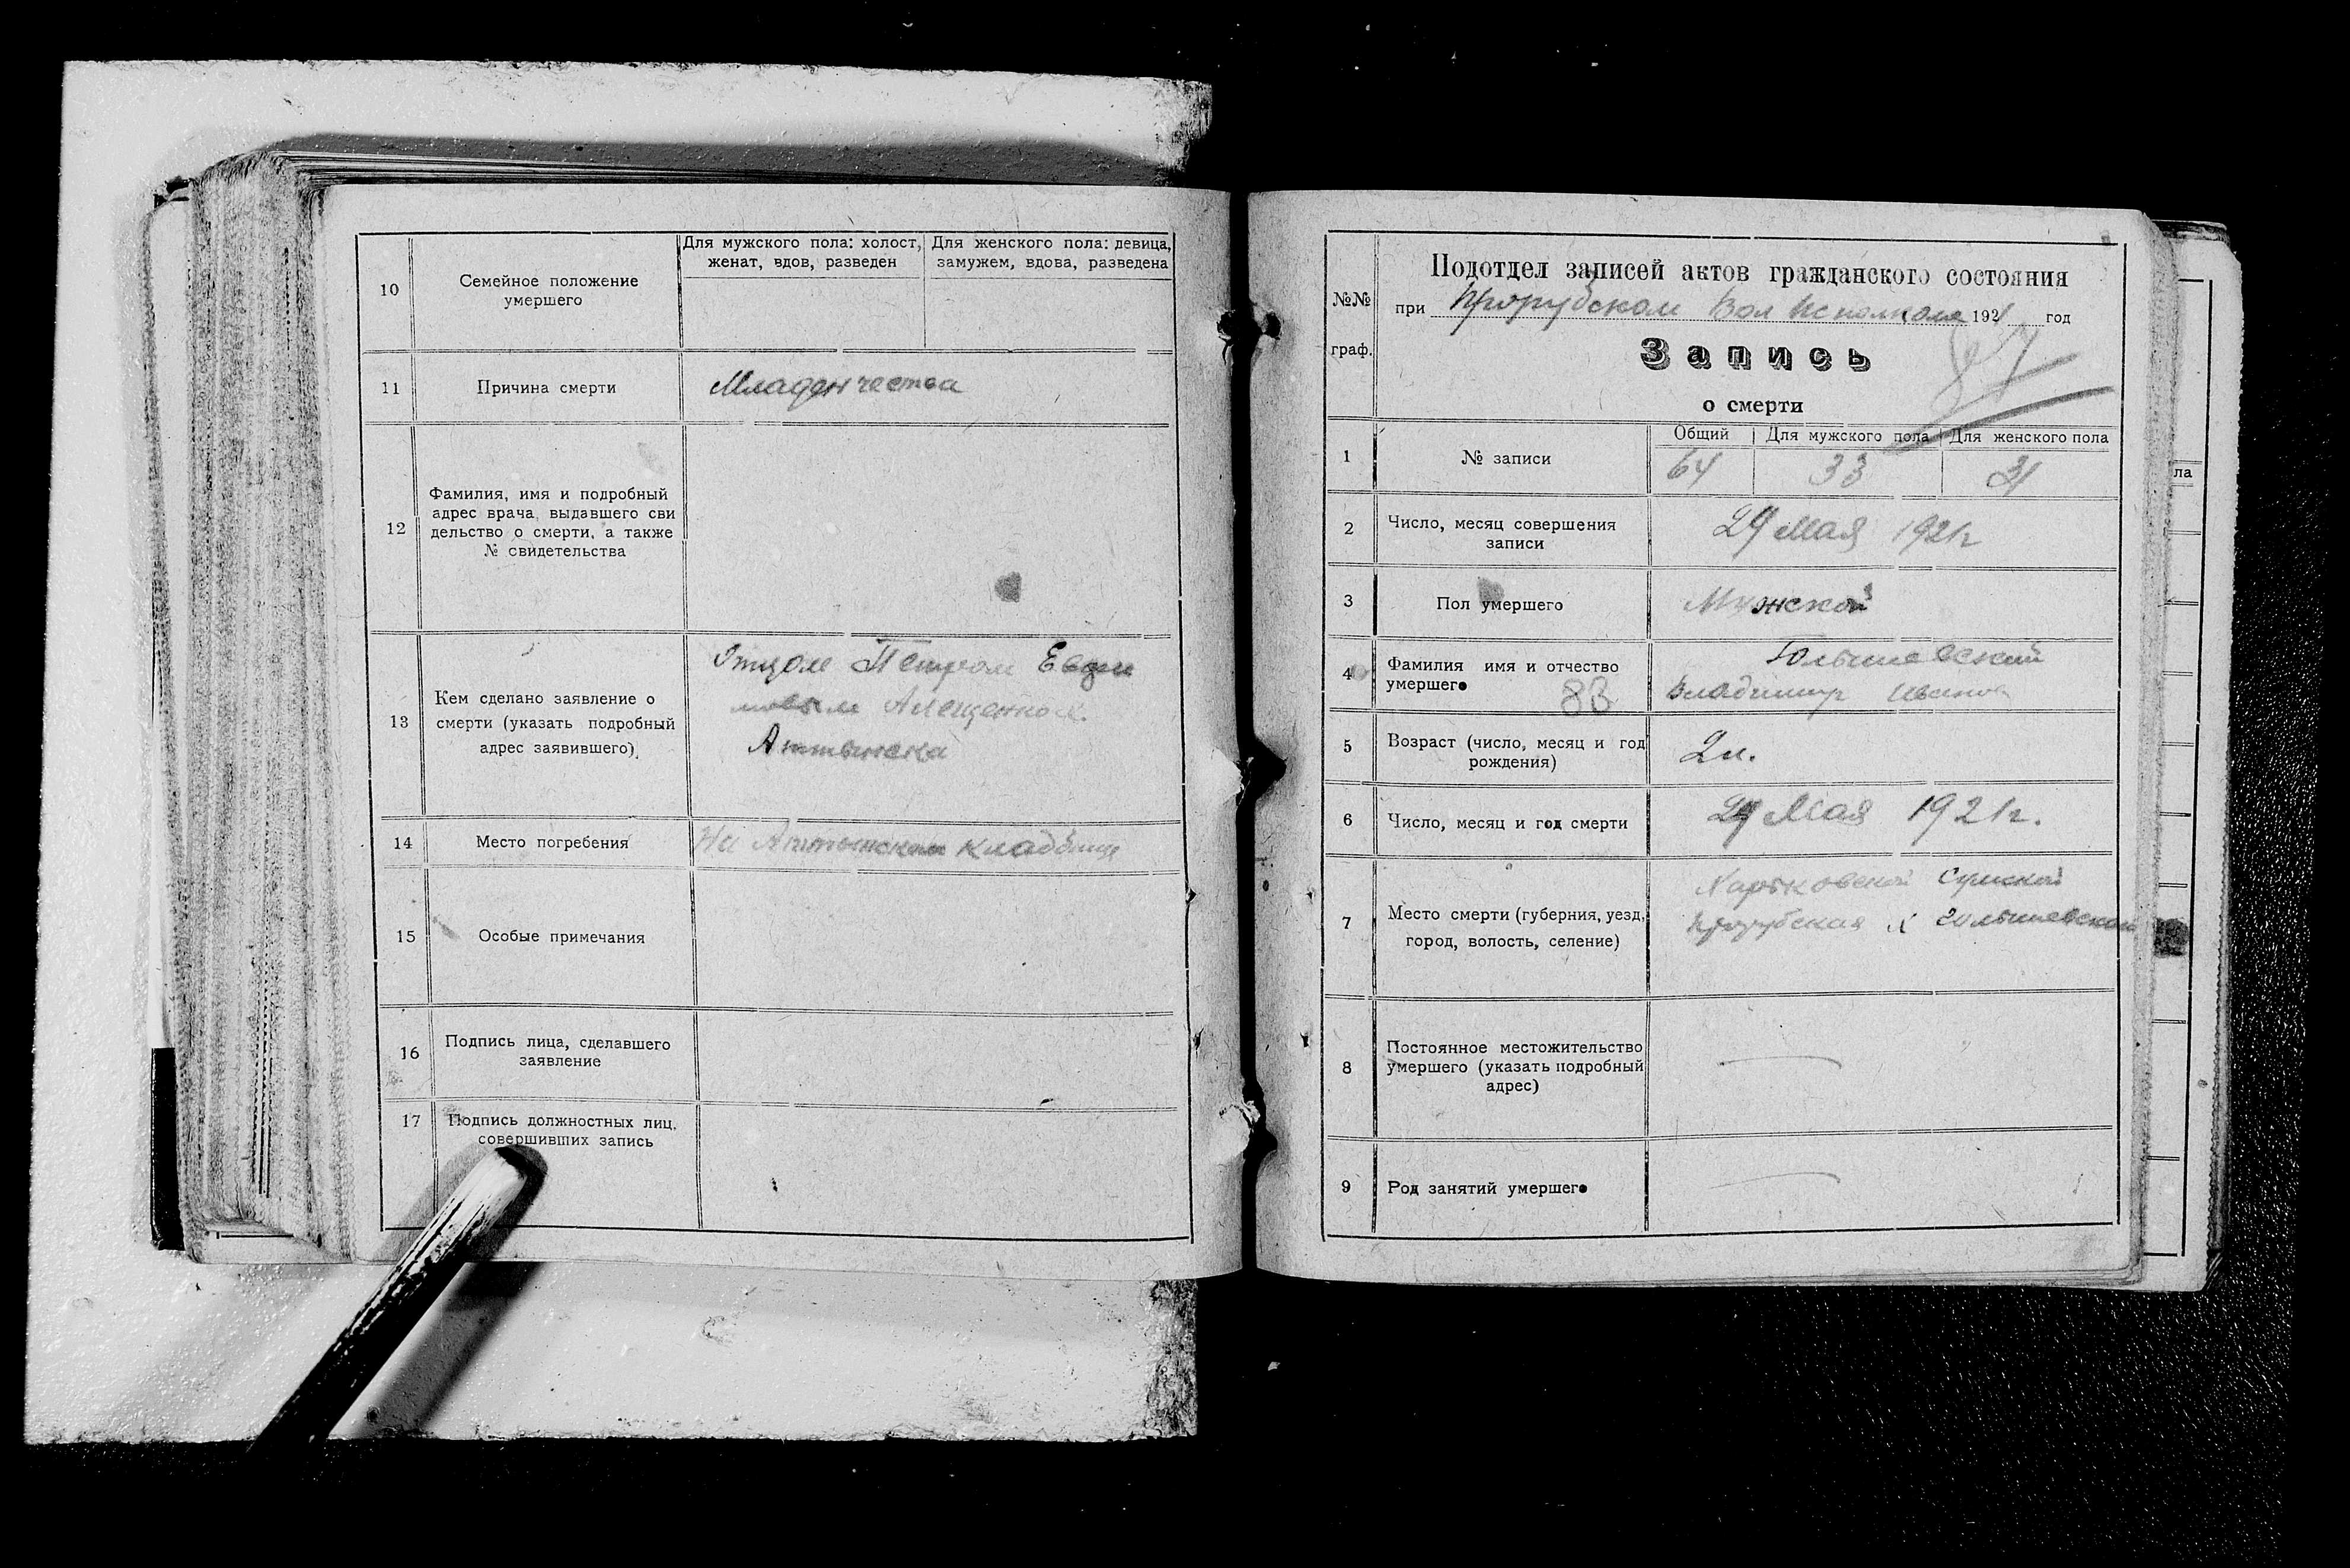 10
Семейное положение
умершего
Для мужского пола: холост,
женат, вдов, разведен
Для женского пола: девица,
замужем, вдова, разведена
11
Причина смерти
Младенчества
12
Фамилия, имя и подробный
адрес врача, выдавшего сви
дельство о смерти, а также
№ свидетельства
13
Кем сделано заявление о
смерти (указать подробный
адрес заявившего)
Отцом Петром Евдо
14
Место погребения
На кладбище
15
Особые примечания
16
Подпись лица, сделавшего
заявление
17
Подпись должностных лиц,
совершивших запись
№№
граф.
Подотдел записей актов гражданского состояния
при Прорубском Вол Исполкоме 1921 год
Запись
о смерти
1
№ записи
Общий
Для мужского пола
Для женского пола
64
33
31
2
Число, месяц совершения
записи
Мая 1921г
3
Пол умершего
Мужской
4
Фамилия имя и отчество
умершего
83
Голышевский
Владимир Иванов
5
Возраст (число, месяц и год
рождения)
6
Число, месяц и год смерти
Мая 1921г.
7
Место смерти (губерния, уезд,
город, волость, селение)
Харьковской Сумской
Прорубская х Голышевской
8
Постоянное местожительство
умершего (указать подробный
адрес)
9
Род занятий умершего
ла